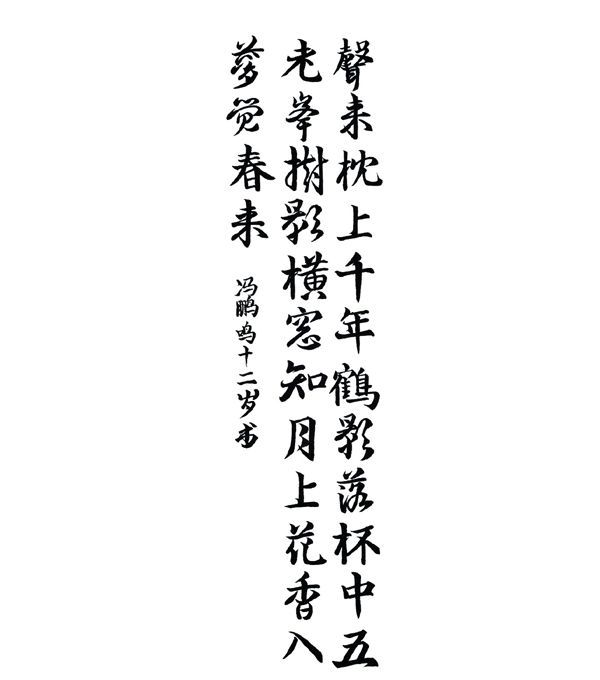 聲来枕上千年鶴影落杯中五
老峯樹影橫窓知月上花香入
夢觉春来
冯鹏鸣十二岁书